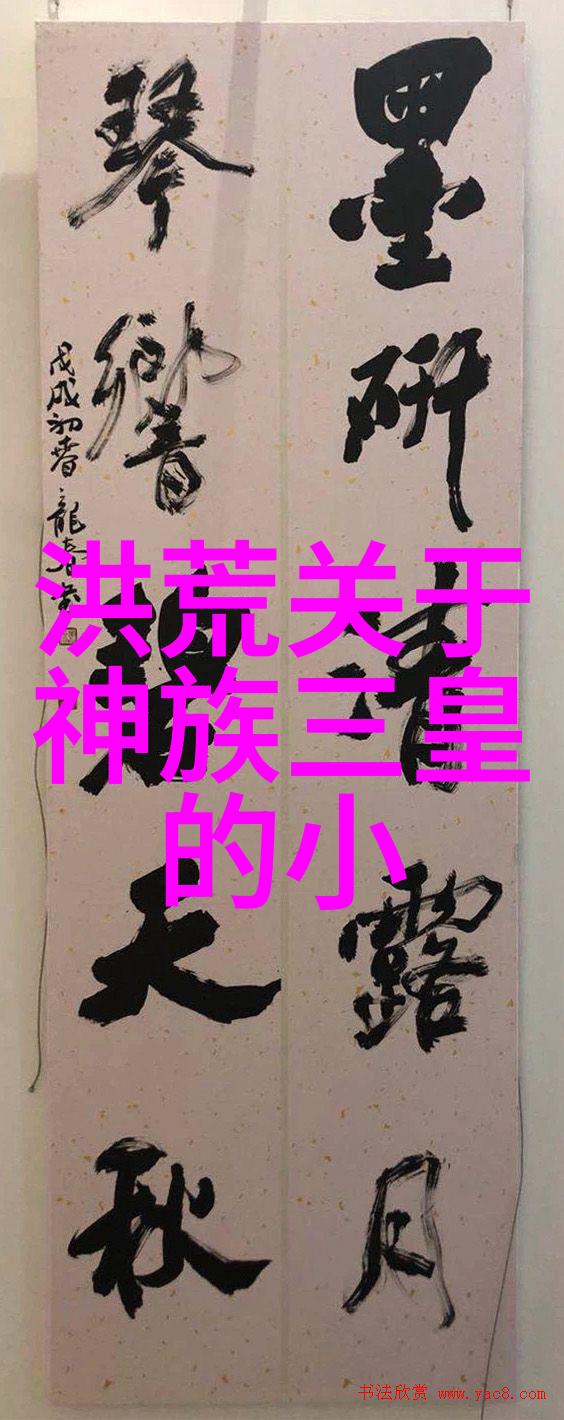 墨研清露月
琴響碧天秋
戊戌初春 龍
洪荒关于
神族三皇
的小
书法欣赏 www.yac8.com